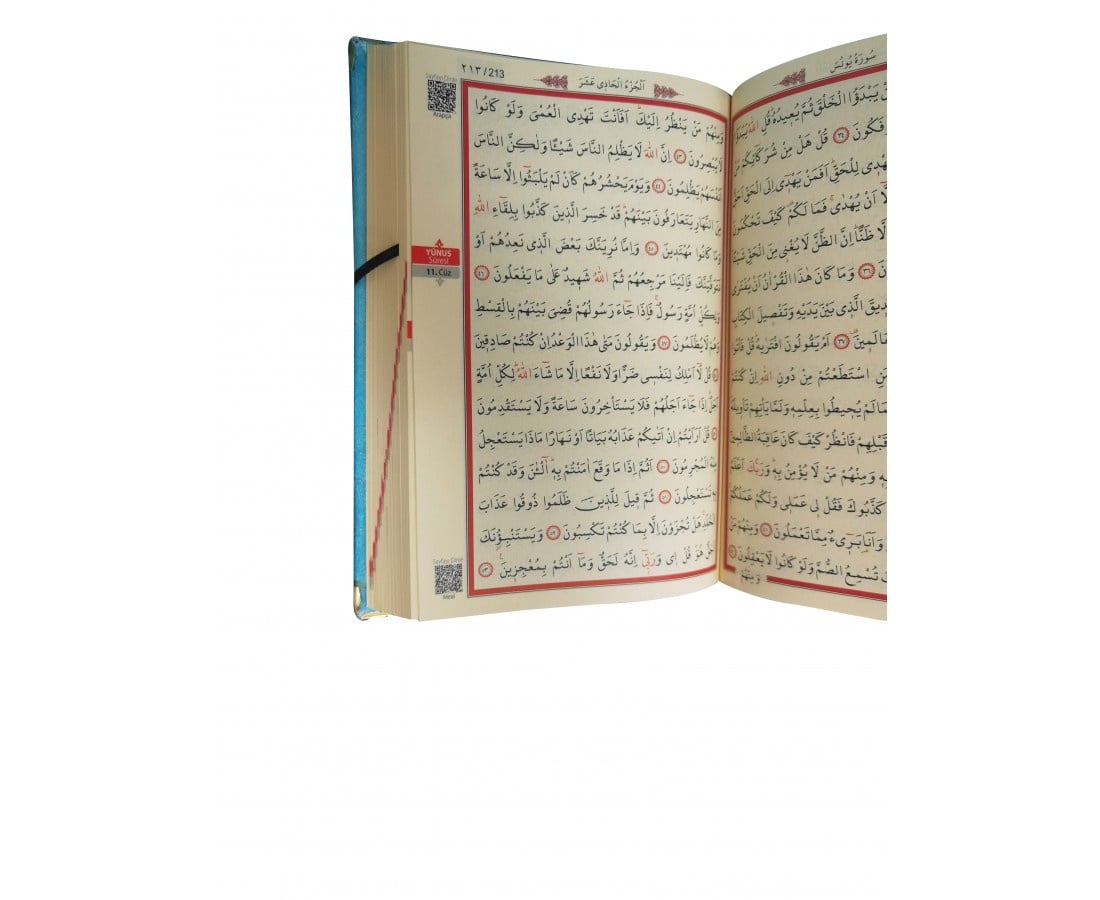 سُورَةُ يُونُسَ
يَبْدَؤُا الْخَلْقَ ثُمَّ يُعٖيدُهُؕ قُلِ اللّٰهُ يَبْدَؤُا
فَكُونَ ﴿٣٤﴾ قُلْ هَلْ مِنْ شُرَكَٓائِكُمْ مَنْ
يَهْدٖى لِلْحَقِّ اَفَمَنْ يَهْدٖٓى اِلَى الْحَقِّ اَحَقُّ
اَنْ يُهْدٰىۚ فَمَا لَكُمْ كَيْفَ تَحْكُمُونَ
اِلَّا ظَنًّاؕ اِنَّ الظَّنَّ لَا يُغْنٖى مِنَ الْحَقِّ شَيْـًٔاؕ
﴿٣٦﴾ وَمَا كَانَ هٰذَا الْقُرْاٰنُ اَنْ يُفْتَرٰى
دٖيقَ الَّذٖى بَيْنَ يَدَيْهِ وَتَفْصٖيلَ الْكِتَابِ
عَالَمٖينَ ﴿٣٧﴾ اَمْ يَقُولُونَ افْتَرٰيهُؕ قُلْ فَاْتُوا
مَنِ اسْتَطَعْتُمْ مِنْ دُونِ اللّٰهِ اِنْ كُنْتُمْ
مَا لَمْ يُحٖيطُوا بِعِلْمِهٖ وَلَمَّا يَاْتِهِمْ تَاْوٖيلُهُ
قَبْلِهِمْ فَانْظُرْ كَيْفَ كَانَ عَاقِبَةُ الظَّالِمٖينَ
بِهٖ وَمِنْهُمْ مَنْ لَا يُؤْمِنُ بِهٖؕ وَرَبُّكَ اَعْلَمُ
كَذَّبُوكَ فَقُلْ لٖى عَمَلٖى وَلَكُمْ عَمَلُكُمْ
وَاَنَا بَرٖٓىءٌ مِمَّا تَعْمَلُونَ ﴿٤١﴾ وَمِنْهُمْ مَنْ
تَ تُسْمِعُ الصُّمَّ وَلَوْ كَانُوا لَا يَعْقِلُونَ ﴿٤٢﴾
وَمِنْهُمْ
اَلْجُزْءُ الْحَادٖى عَشَرَ
٢١٣ / 213
وَمِنْهُمْ مَنْ يَنْظُرُ اِلَيْكَؕ اَفَاَنْتَ تَهْدِى الْعُمْىَ وَلَوْ كَانُوا
لَا يُبْصِرُونَ ﴿٤٣﴾ اِنَّ اللّٰهَ لَا يَظْلِمُ النَّاسَ شَيْـًٔا وَلٰكِنَّ النَّاسَ
اَنْفُسَهُمْ يَظْلِمُونَ ﴿٤٤﴾ وَيَوْمَ يَحْشُرُهُمْ كَاَنْ لَمْ يَلْبَثُٓوا اِلَّا سَاعَةً
مِنَ النَّهَارِ يَتَعَارَفُونَ بَيْنَهُمْؕ قَدْ خَسِرَ الَّذٖينَ كَذَّبُوا بِلِقَٓاءِ اللّٰهِ
وَمَا كَانُوا مُهْتَدٖينَ ﴿٤٥﴾ وَاِمَّا نُرِيَنَّكَ بَعْضَ الَّذٖى نَعِدُهُمْ اَوْ
نَتَوَفَّيَنَّكَ فَاِلَيْنَا مَرْجِعُهُمْ ثُمَّ اللّٰهُ شَهٖيدٌ عَلٰى مَا يَفْعَلُونَ ﴿٤٦﴾
وَلِكُلِّ اُمَّةٍ رَسُولٌۚ فَاِذَا جَٓاءَ رَسُولُهُمْ قُضِىَ بَيْنَهُمْ بِالْقِسْطِ
وَهُمْ لَا يُظْلَمُونَ ﴿٤٧﴾ وَيَقُولُونَ مَتٰى هٰذَا الْوَعْدُ اِنْ كُنْتُمْ صَادِقٖينَ
﴿٤٨﴾ قُلْ لَٓا اَمْلِكُ لِنَفْسٖى ضَرًّا وَلَا نَفْعًا اِلَّا مَا شَٓاءَ اللّٰهُؕ لِكُلِّ اُمَّةٍ
اَجَلٌؕ اِذَا جَٓاءَ اَجَلُهُمْ فَلَا يَسْتَاْخِرُونَ سَاعَةً وَلَا يَسْتَقْدِمُونَ
﴿٤٩﴾ قُلْ اَرَاَيْتُمْ اِنْ اَتٰيكُمْ عَذَابُهُ بَيَاتًا اَوْ نَهَارًا مَاذَا يَسْتَعْجِلُ
مِنْهُ الْمُجْرِمُونَ ﴿٥٠﴾ اَثُمَّ اِذَا مَا وَقَعَ اٰمَنْتُمْ بِهٖؕ آٰلْـٰٔنَ وَقَدْ كُنْتُمْ
بِهٖ تَسْتَعْجِلُونَ ﴿٥١﴾ ثُمَّ قٖيلَ لِلَّذٖينَ ظَلَمُوا ذُوقُوا عَذَابَ
الْخُلْدِۚ هَلْ تُجْزَوْنَ اِلَّا بِمَا كُنْتُمْ تَكْسِبُونَ ﴿٥٢﴾ وَيَسْتَنْبِؤُ۫نَكَ
اَحَقٌّ هُوَؕ قُلْ اٖى وَرَبّٖٓى اِنَّهُ لَحَقٌّؕ وَمَٓا اَنْتُمْ بِمُعْجِزٖينَ ﴿٥٣﴾
Sayfayı Dinle
Arapça
YÛNUS
Sûresi
11. Cüz
Sayfayı Dinle
Meal